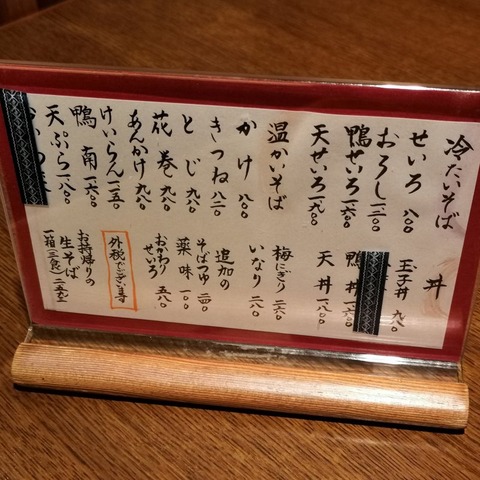 冷たいそば
せいろ 八〇〇
おろし 一三〇〇
鴨せいろ 一六〇〇
天せいろ 一九〇〇
温かいそば
かけ 八〇〇
きつね 八二〇
とじ 九八〇
花巻 九八〇
あんかけ 九八〇
けいらん 一一五〇
鴨南 一六〇〇
天ぷら 一八〇〇
丼
玉子丼 九八〇
鴨丼 一一六〇
天丼 一八〇〇
梅にぎり 二六〇
いなり 二八〇
追加の
そばつゆ 一四〇
薬味 一〇〇
おかわり
せいろ 五八〇
外税でございます
お持帰りの
生そば
一箱(三食)